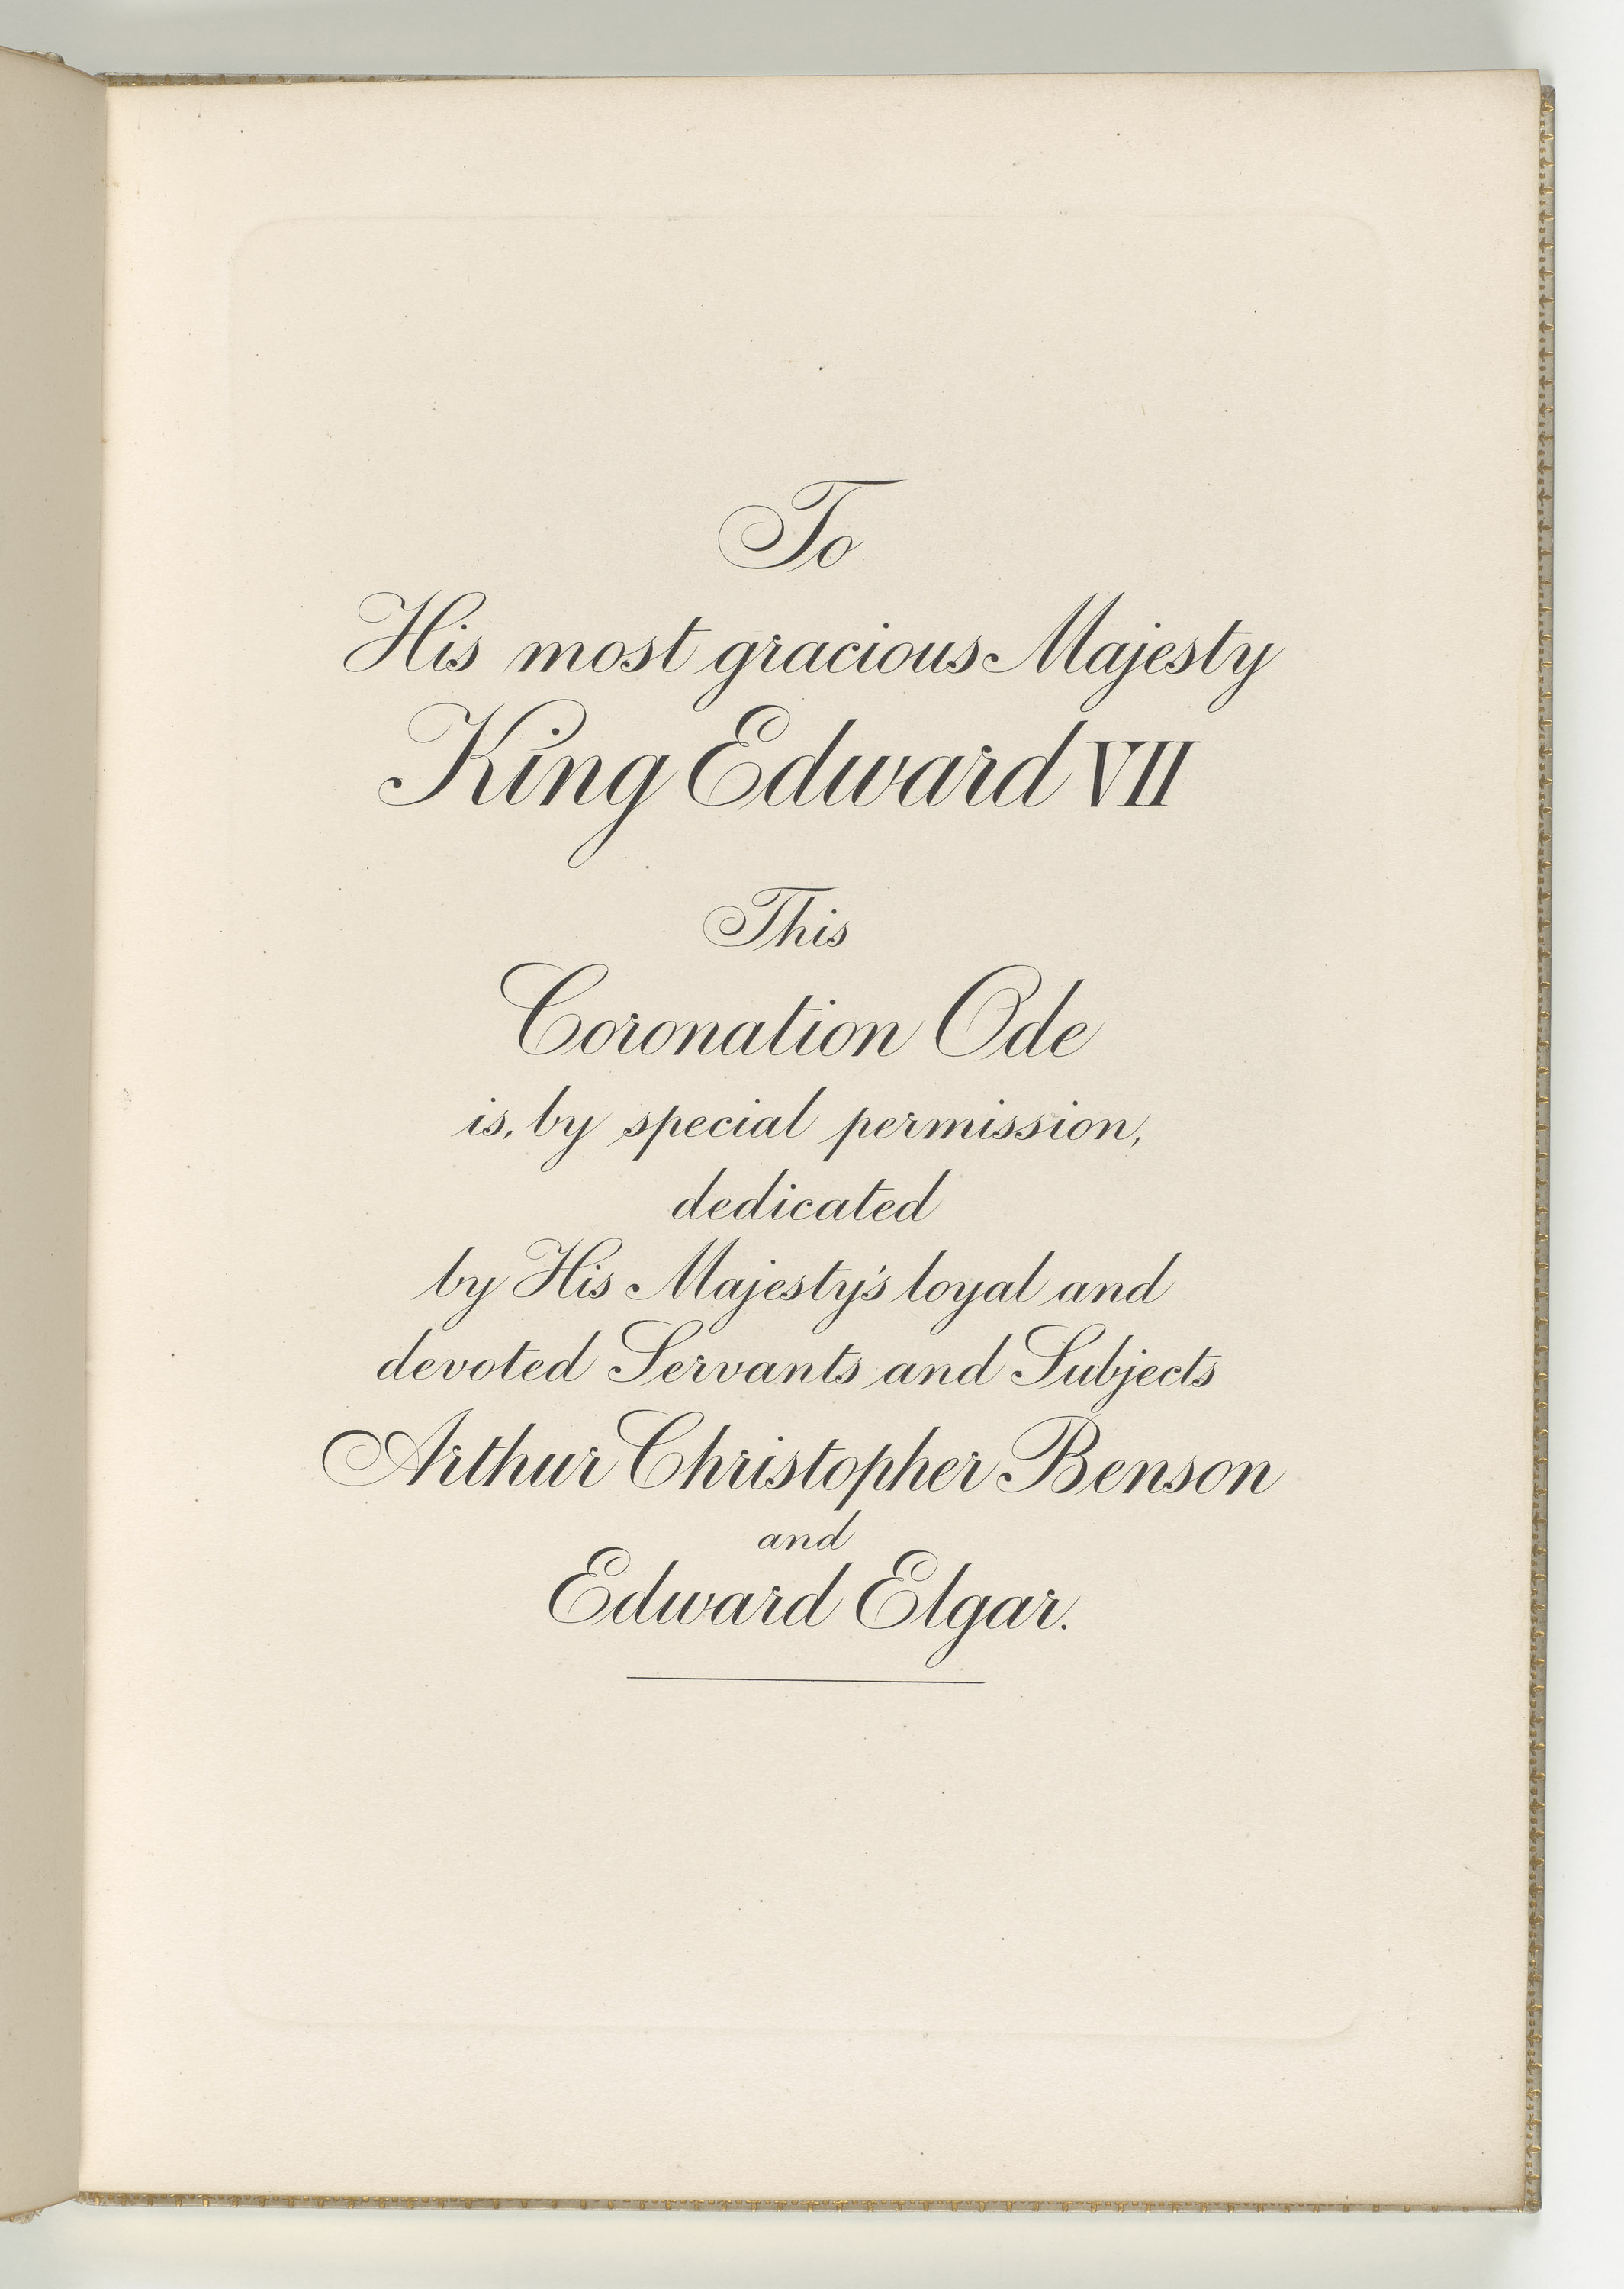 To
His most gracious Majesty
King Edward VII
This
Coronation Ode
is, by special permission,
dedicated
by His Majesty's loyal and
devoted Servants and Subjects
Arthur Christopher Benson
and
Edward Elgar.